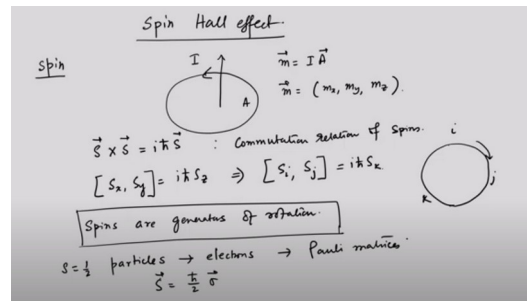 Spin Hall effect.
Spin
I
A
m⃗ = I A⃗
m⃗ = (mx, my, mz).
S⃗ × S⃗ = iħ S⃗ : Commutation relation of spins.
[Sx, Sy] = iħ Sz ⇒ [Si, Sj] = iħ Sk
i
j
k
Spins are generators of rotation.
S = 1/2 particles → electrons → Pauli matrices
S⃗ = ħ/2 σ⃗